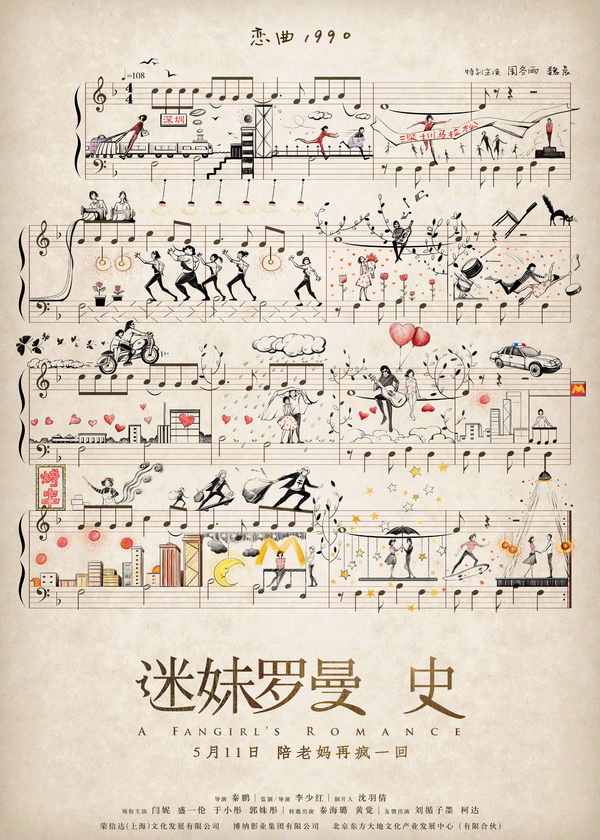 恋曲1990
♩=108
特别主演 周冬雨 魏晨
深圳
深圳马拉松
迷妹罗曼 史
A FANGIRL'S ROMANCE
5月11日 陪老妈再疯一回
导演 秦鹏 | 监制/导演 李少红 | 制片人 沈羽倩
领衔主演 闫妮 盛一伦 于小彤 郭姝彤 | 特邀出演 秦海璐 黄觉 | 友情出演 刘循子墨 柯达
荣信达(上海)文化发展有限公司 博纳影业集团有限公司 北京东方大地文化产业发展中心(有限合伙)